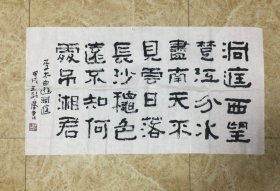 洞庭西望
楚江分水
盡南天不
見雲日落
長沙穐色
遠不知何
處吊湘君
李太白遊洞庭